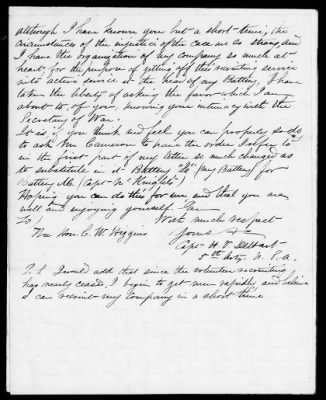 although I have known you but a short time, the
circumstances of the injustice of the case are so strong, and
I have the organization of my company so much at
heart for the purpose of getting off this recruiting service
into active service at the head of my Battery, I have
taken the liberty of asking the favor which I am
about to, of you, knowing your intimacy with the
Secretary of War.
It is if you think and feel you can properly so do
to ask Mr Cameron to have the order I refer to
in the first part of my letter so much changed as
to substitute in it Battery (my Battery) for
Battery (Capt McKnight's)
Hoping you can do this for me and that you are
well and enjoying yourself I am
To With much respect
The Hon C. W. Higgins Yours &c
Capt H. V. DeHart
5th Arty. U. S. A.
P.S. I would add that since the volunteer recruiting
has nearly ceased, I begin to get men rapidly and believe
I can recruit my company in a short time